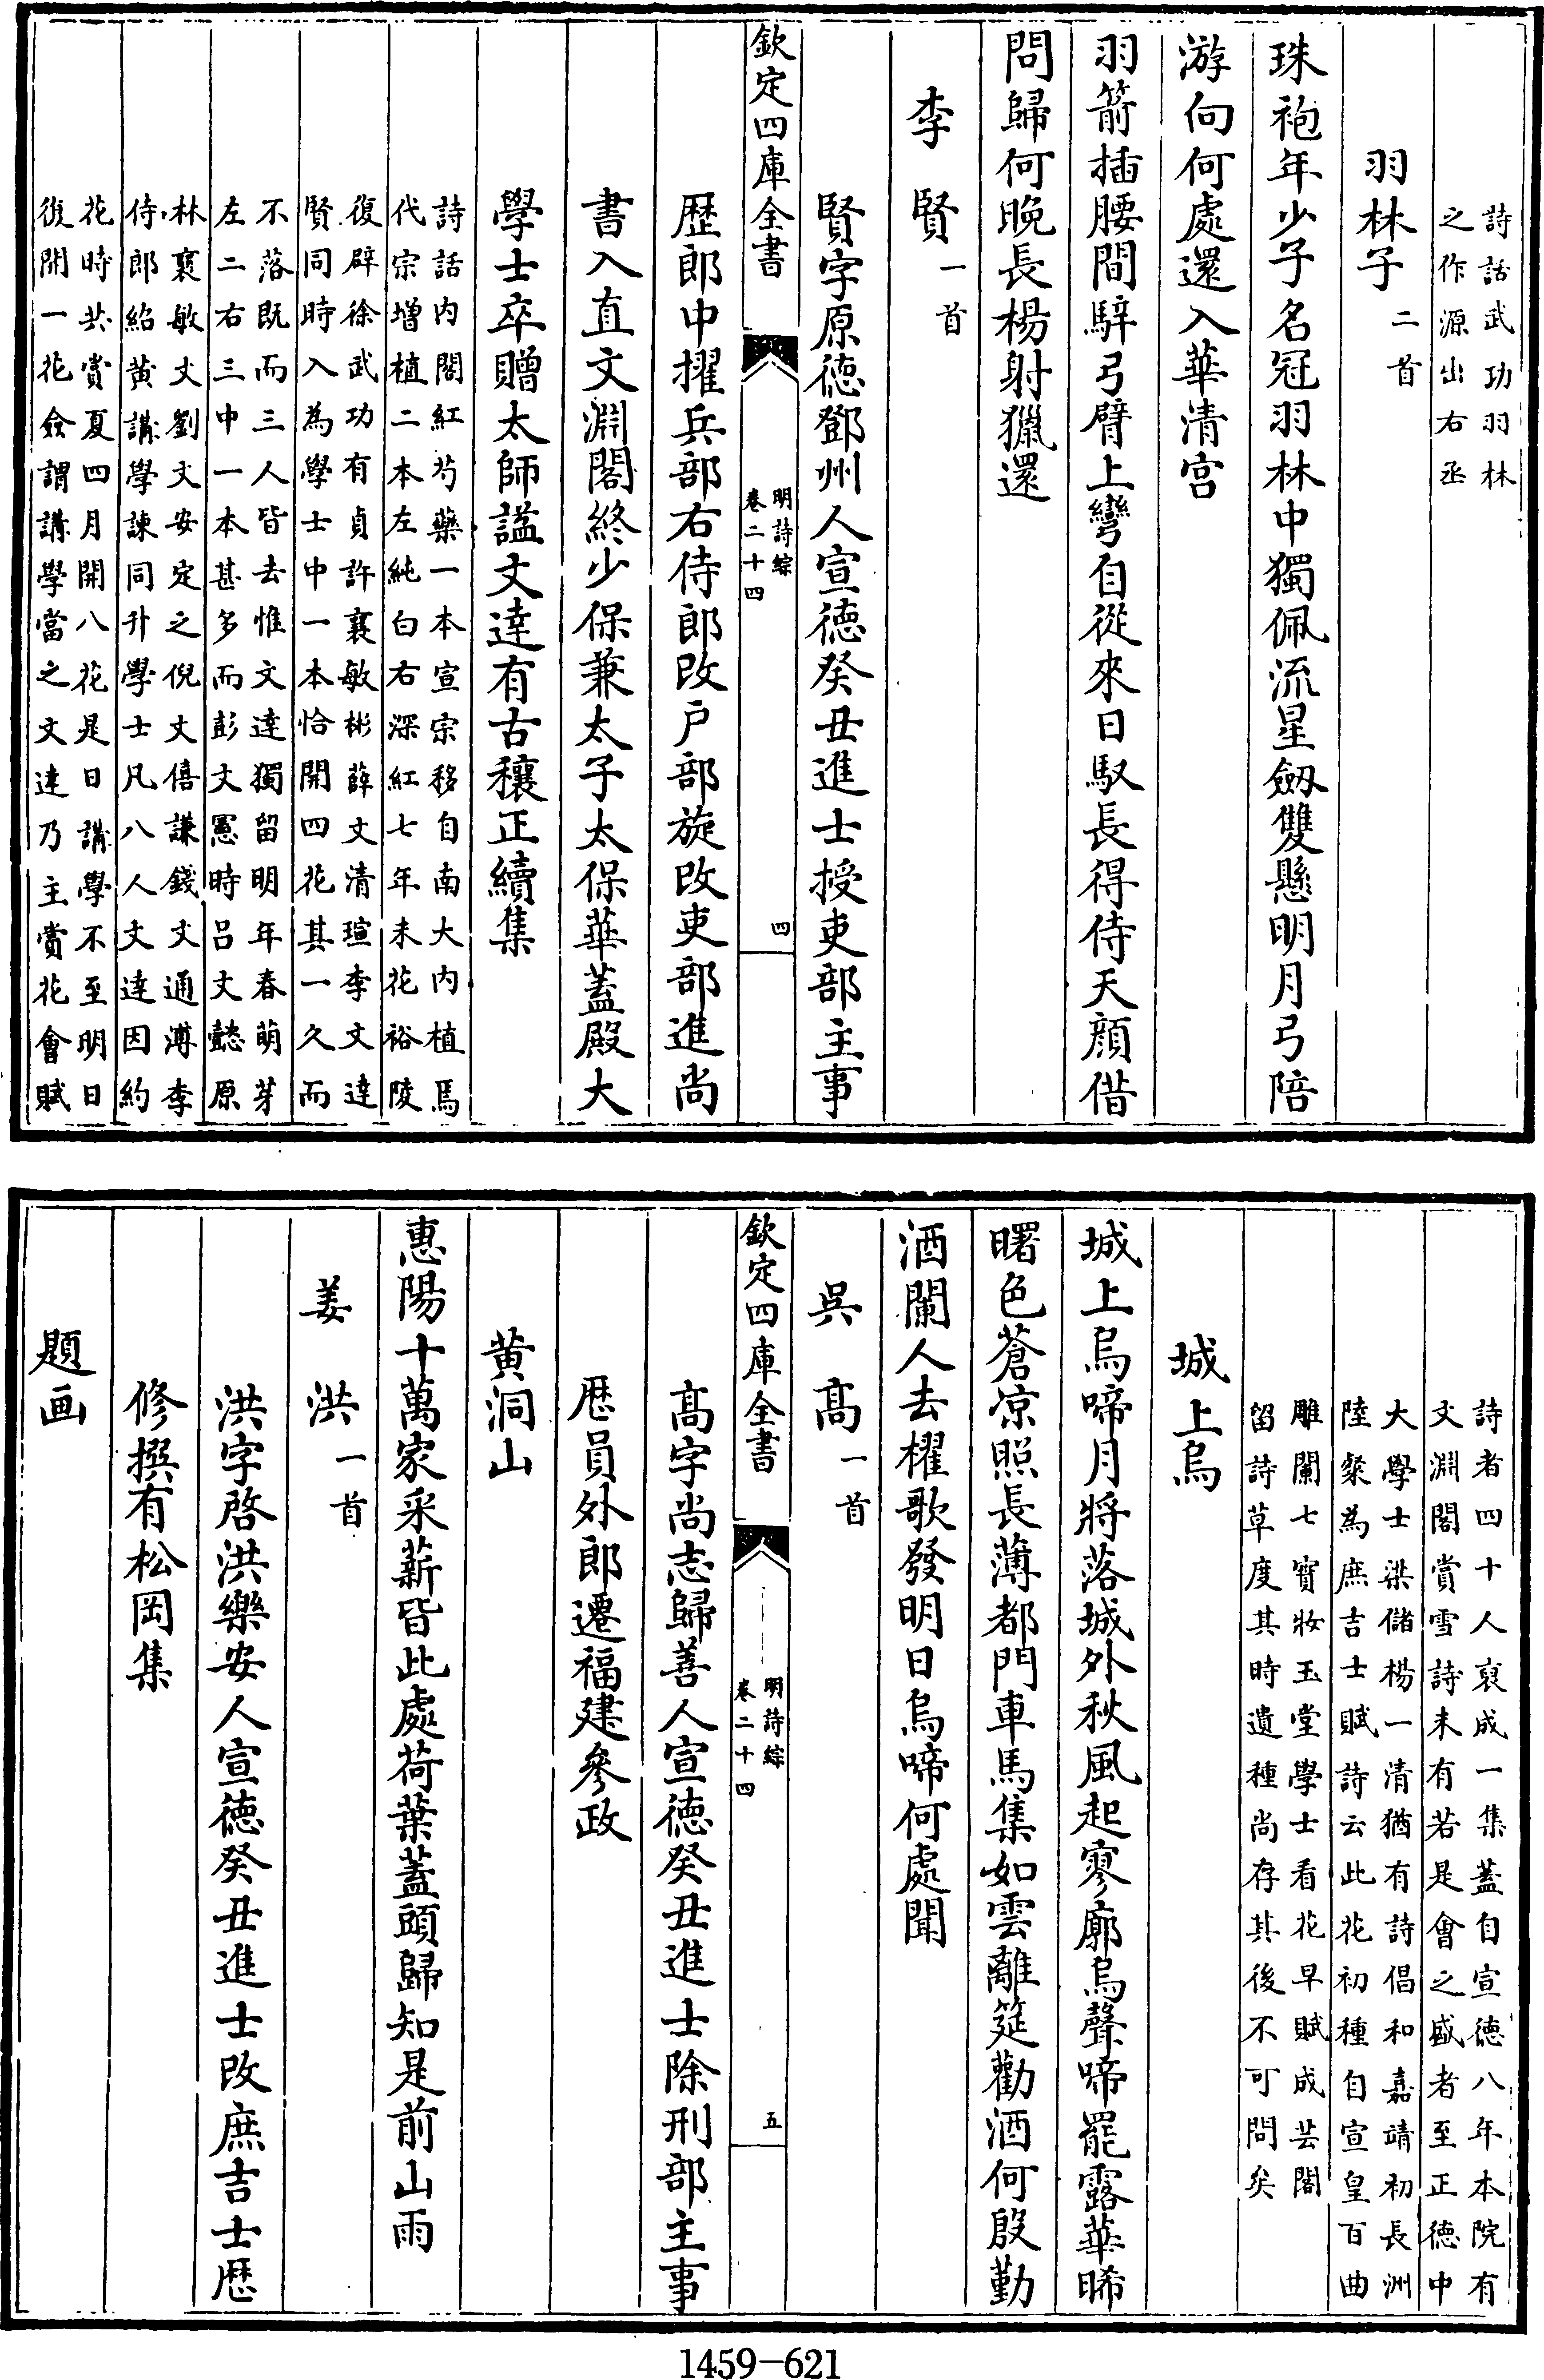 詩話武功羽林
之作源出右丞
羽林子二首
珠袍年少子名冠羽林中獨佩流星劒雙懸明月弓陪
游向何處還入華清宫
羽箭插腰間騂弓臂上彎自從來日馭長得侍天顔偕
問歸何晚長楊射獵還
李賢一首
賢字原徳鄧州人宣徳癸丑進士授吏部主事
欽定四庫全書
明詩綜
卷二十四
四
歴郎中擢兵部右侍郎改户部旋改吏部進尚
書入直文淵閣終少保兼太子太保華蓋殿大
學士卒贈太師諡文達有古穰正續集
詩話内閣紅芍藥一本宣宗移自南大内植焉
代宗增植二本左純白右深紅七年未花裕陵
復辟徐武功有貞許襄敏彬薛文清瑄李文達
賢同時入為學士中一本恰開四花其一久而
不落既而三人皆去惟文達獨留明年春萌芽
左二右三中一本甚多而彭文憲時吕文懿原
林襄敏文劉文安定之倪文僖謙錢文通溥李
侍郎紹黄講學諫同升學士凡八人文達因約
花時共賞夏四月開八花是日講學不至明日
復開一花僉謂講學當之文達乃主賞花會賦
詩者四十人裒成一集蓋自宣徳八年本院有
文淵閣賞雪詩未有若是會之盛者至正徳中
大學士梁儲楊一清猶有詩倡和嘉靖初長洲
陸粲為庶吉士賦詩云此花初種自宣皇百曲
雕闌七寳妝玉堂學士看花早賦成芸閣
留詩草度其時遺種尚存其後不可問矣
城上烏
城上烏啼月將落城外秋風起寥廓烏聲啼罷露華晞
曙色蒼凉照長薄都門車馬集如雲離筵勸酒何殷勤
酒闌人去櫂歌發明日烏啼何處聞
吳髙一首
欽定四庫全書
明詩綜
卷二十四
五
髙字尚志歸善人宣徳癸丑進士除刑部主事
歴員外郎遷福建參政
黄洞山
惠陽十萬家采薪皆此處荷葉蓋頭歸知是前山雨
姜洪一首
洪字啓洪樂安人宣徳癸丑進士改庶吉士歴
修撰有松岡集
題画
1459-621